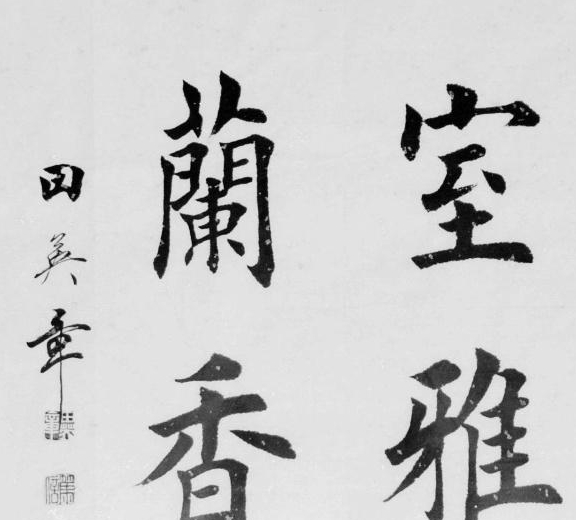 室雅
蘭香
田英章